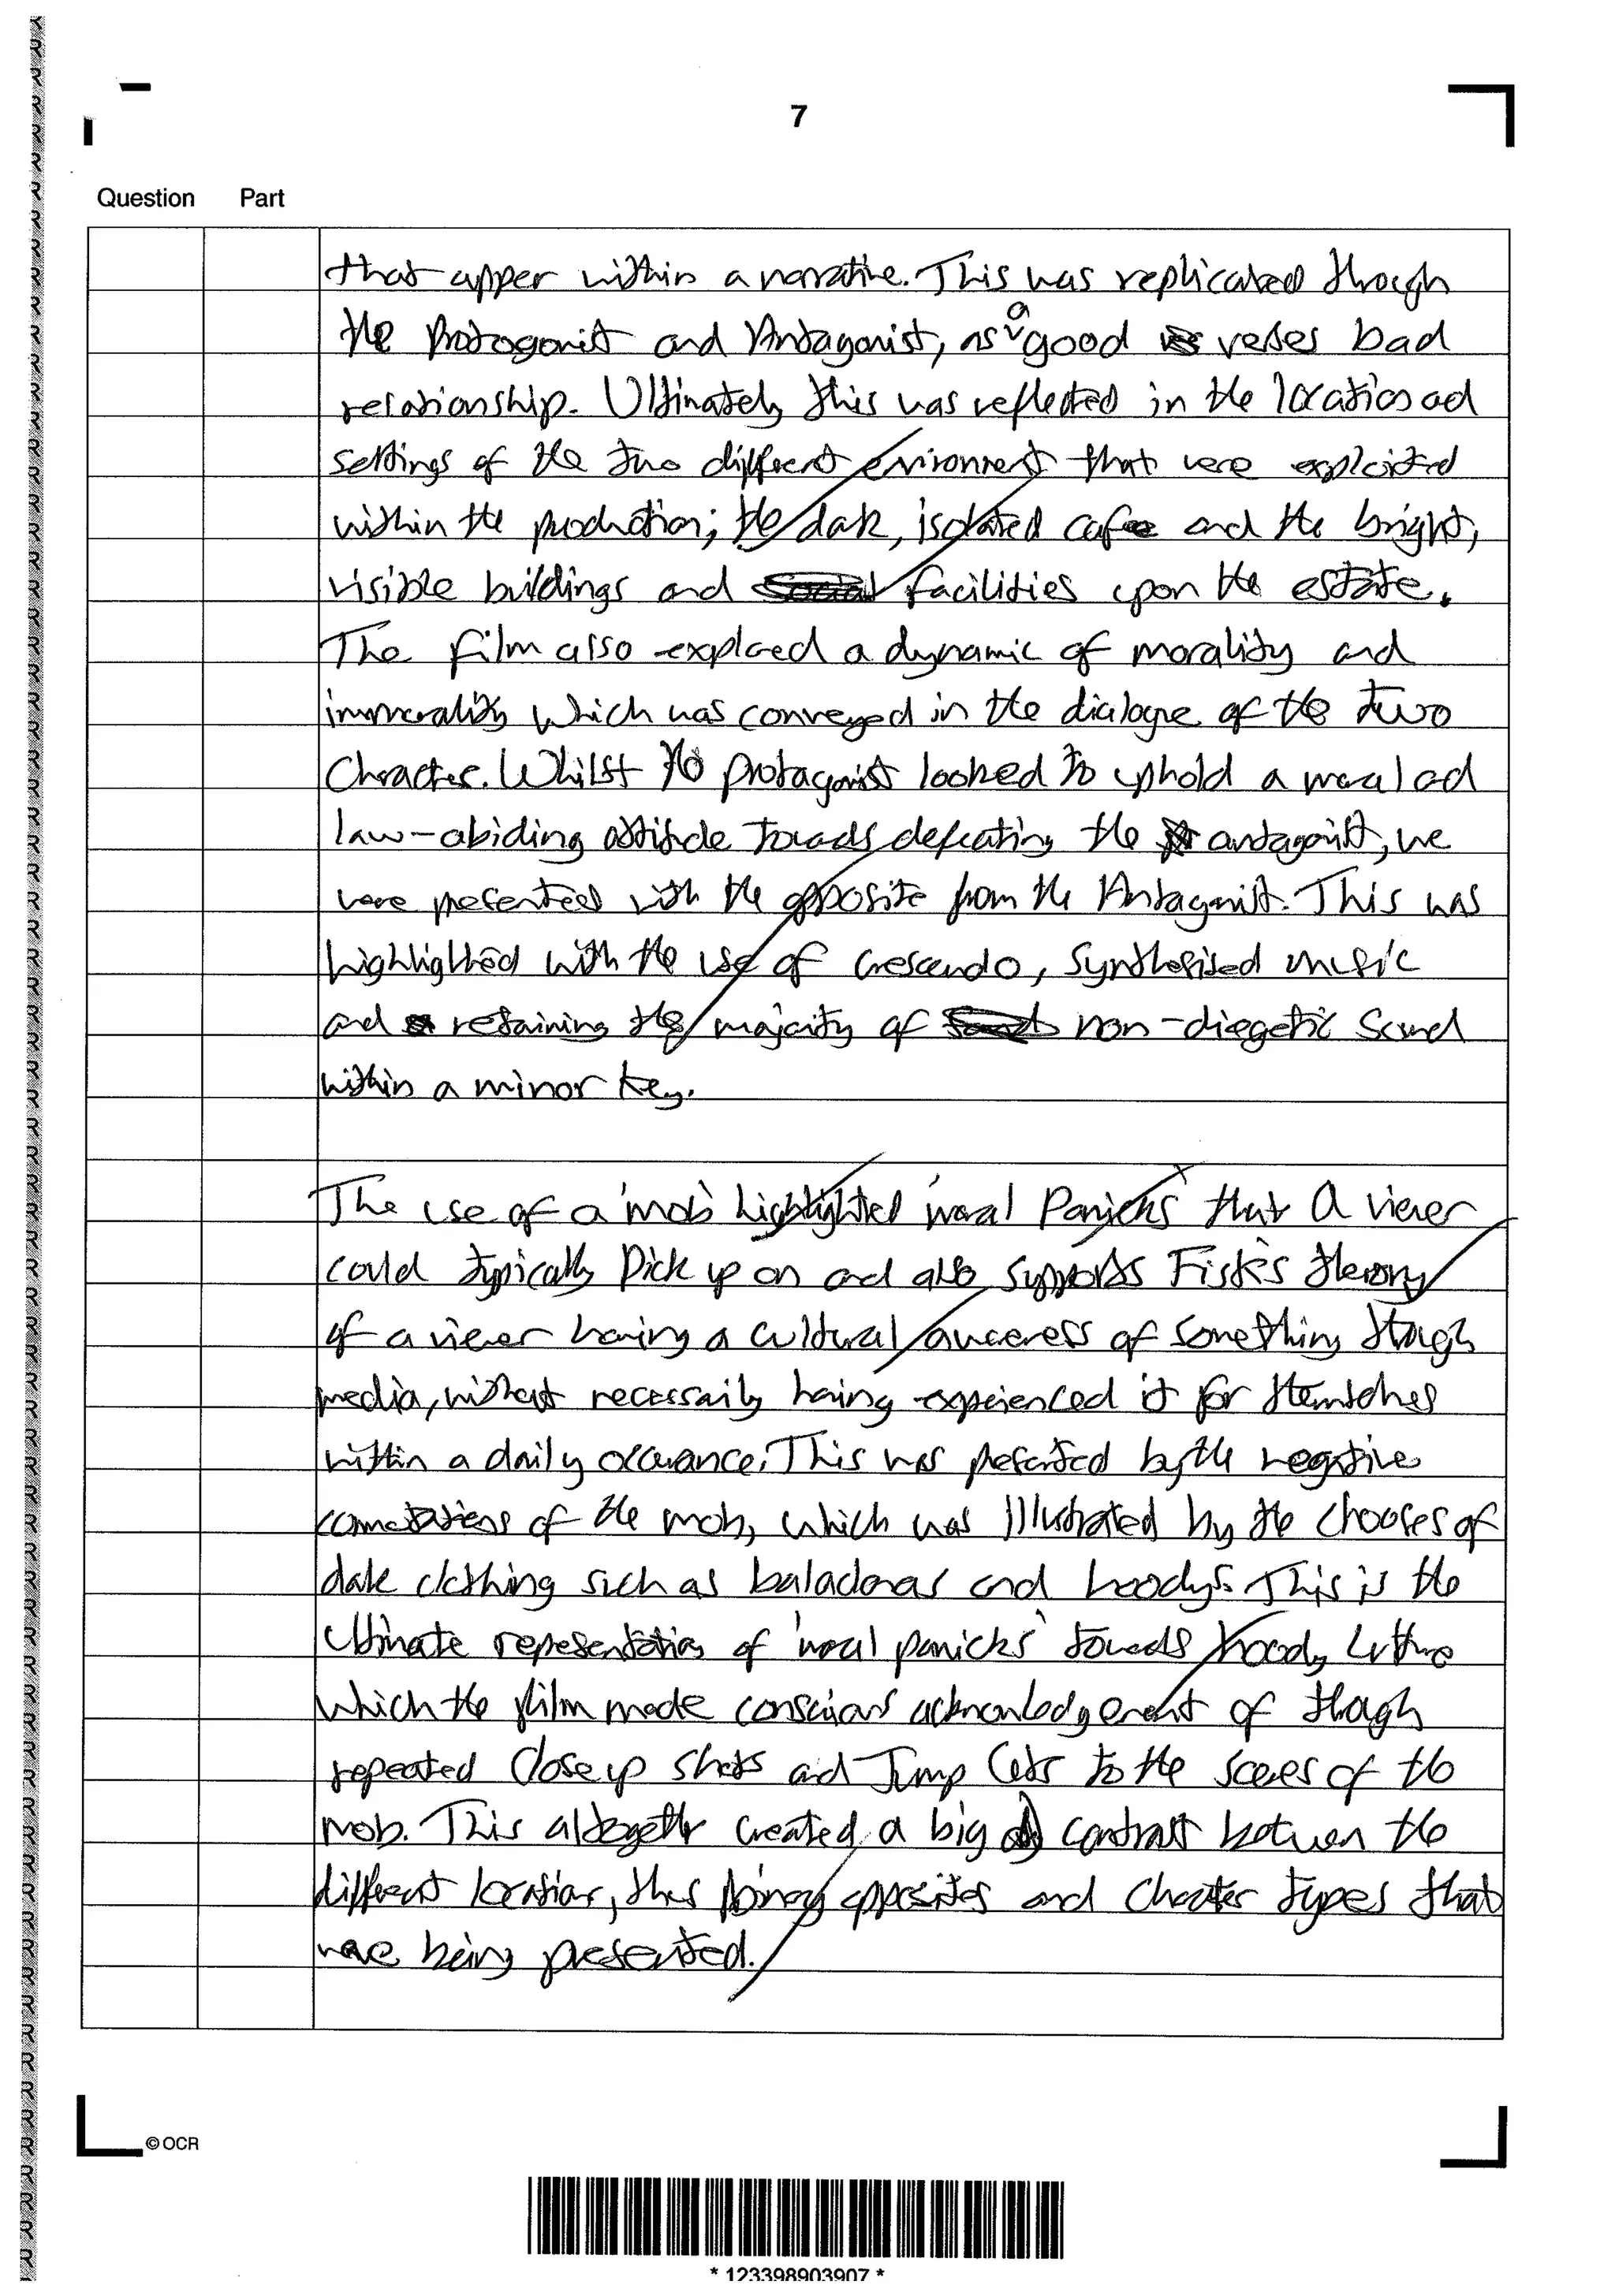 7
Question Part
that apper within a narrative. This was replicated though
the Protogonist and Antagonist, as a good verses bad
relationship. Ultimately this was reflected in the locations ad
settings of the two different environment that were exploited
within the production; the dark, isolated cafe and the bright,
visible buildings and facilities upon the estate.
The film also explored a dynamic of morality and
immorality which was conveyed in the dialogue of the two
Character. Whilst the protagonist looked to uphold a moral ad
law-abiding attitude towards defeating the antagonist, we
were presented with the opposite from the Antagonist. This was
highlighted with the use of crescendo, synthesised music
and retaining the majority of non-diegetic sound
within a minor key.
The use of a 'mob' highlighted 'moral Panicks' that a viewer
could typically pick up on and also supports Fiske's theory
of a viewer having a cultural awareness of something though
media, without necessarily having experienced it for themselves
within a daily occurance. This was presented by the negative
connotations of the mob, which was illustrated by the chooses of
dark clothing such as balaclavas and hoodys. This is the
Ultimate representation of 'moral panicks' towards hoody culture
which the film made conscious acknowledgement of though
repeated Close up shots and Jump Cuts to the scenes of the
mob. This altogether created a big contrast between the
different locations, thus binary opposites and character types that
were being presented.
© OCR
* 123398903907 *